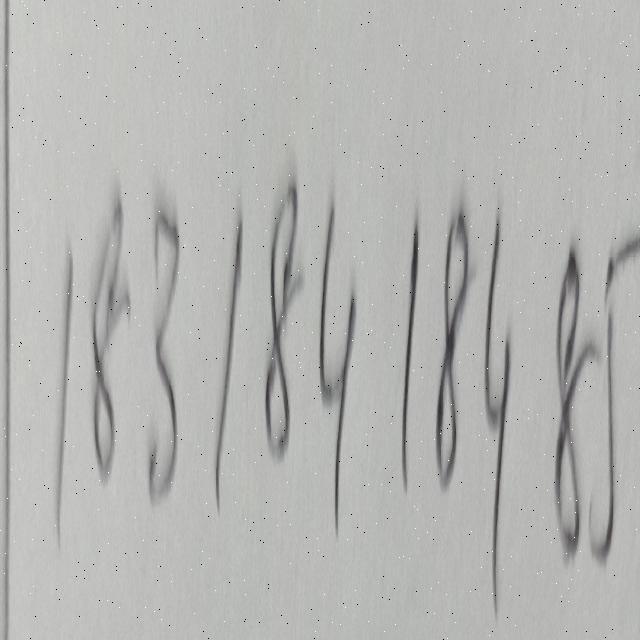 183 184 184 85